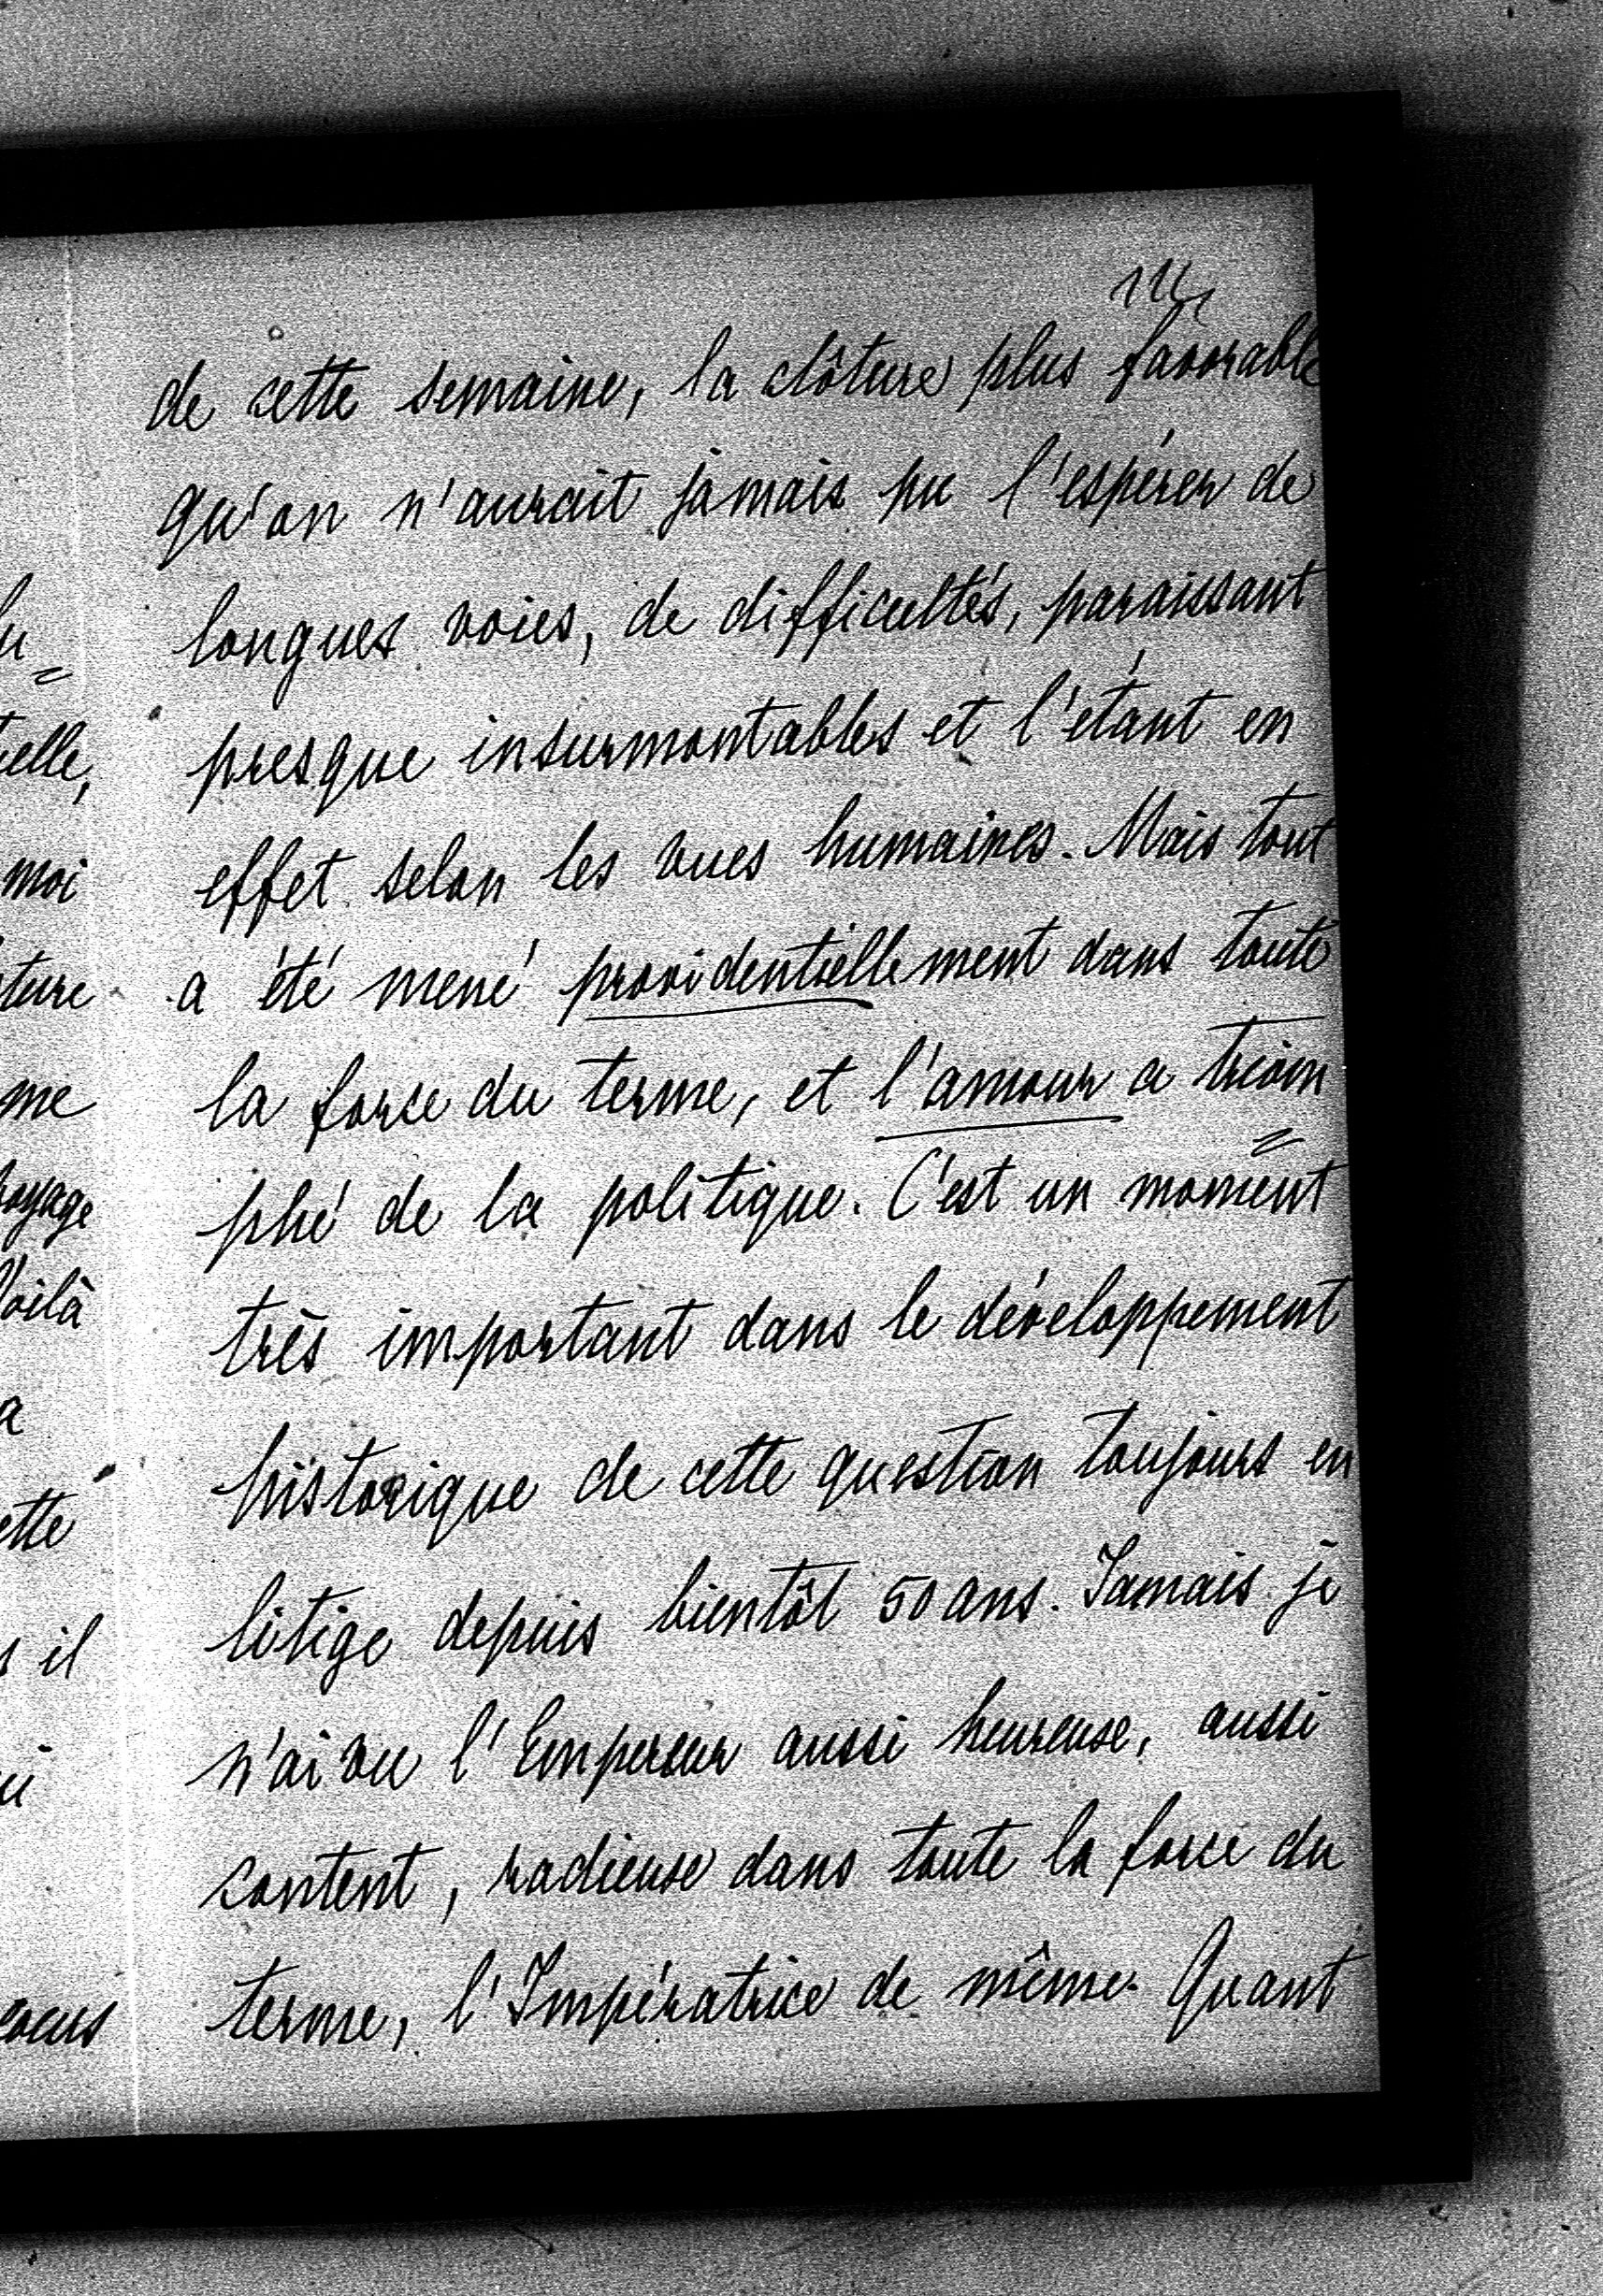 de cette semaine, la clôture plus favorable
qu'on n'aurait jamais pu l'espérer de
longues voies, de difficultés, paraissant
presque insurmontables et l'étant en
effet selon les vues humaines. Mais tout
a été mené providentiellement dans toute
la force du terme, et l'amour a triom=
phé de la politique. C'est un moment
très important dans le développement
historique de cette question toujours en
litige depuis bientôt 50 ans. Jamais je
n'ai vu l'Empereur aussi heureuse, aussi
content, radieuse dans toute la force du
terme, l'Impératrice de même. Quant
elle,
moi
ture
me
voyage
Voilà
a
ette
il